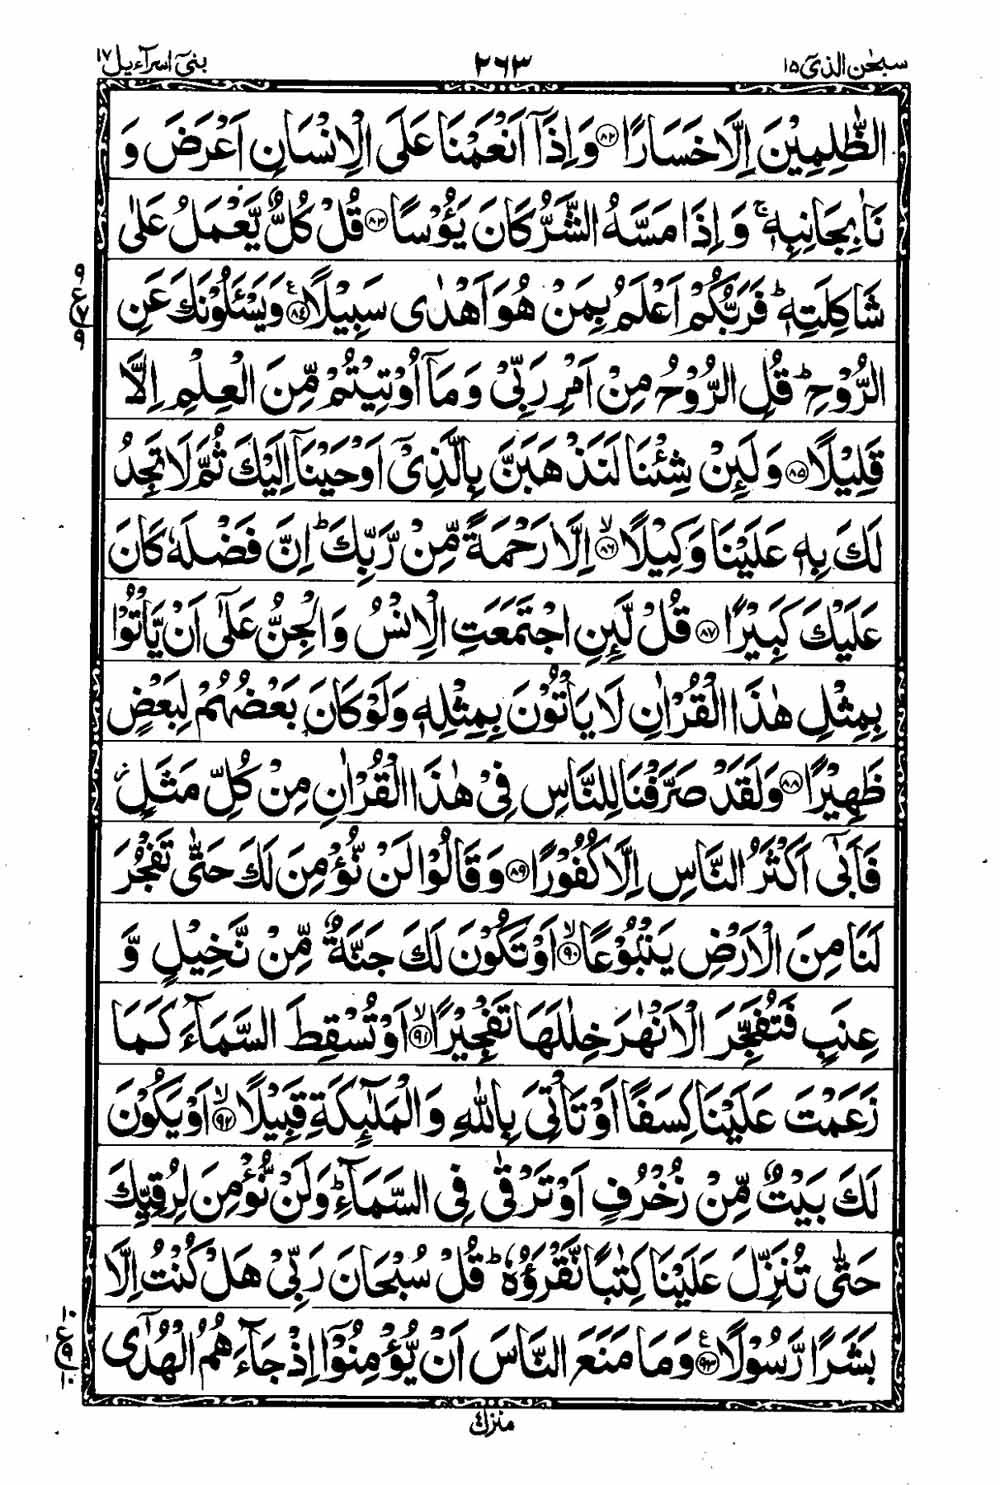 سبحٰن الذی ۱۵
۲۶۳
بنیٓ اسرآءیل ۱۷
الظّٰلِمِیْنَ اِلَّا خَسَارًا ۸۲ وَ اِذَاۤ اَنْعَمْنَا عَلَى الْاِنْسَانِ اَعْرَضَ وَ
نَاٰ بِجَانِبِهٖ ۚ وَ اِذَا مَسَّهُ الشَّرُّ كَانَ یَـُٔوْسًا ۸۳ قُلْ كُلٌّ یَّعْمَلُ عَلٰى
شَاكِلَتِهٖ ؕ فَرَبُّكُمْ اَعْلَمُ بِمَنْ هُوَ اَهْدٰى سَبِیْلًا ۸۴ ع وَ یَسْـَٔلُوْنَكَ عَنِ
الرُّوْحِ ؕ قُلِ الرُّوْحُ مِنْ اَمْرِ رَبِّیْ وَ مَاۤ اُوْتِیْتُمْ مِّنَ الْعِلْمِ اِلَّا
قَلِیْلًا ۸۵ وَ لَىِٕنْ شِئْنَا لَنَذْهَبَنَّ بِالَّذِیْۤ اَوْحَیْنَاۤ اِلَیْكَ ثُمَّ لَا تَجِدُ
لَكَ بِهٖ عَلَیْنَا وَكِیْلًا ۸۶ ۙ اِلَّا رَحْمَةً مِّنْ رَّبِّكَ ؕ اِنَّ فَضْلَهٗ كَانَ
عَلَیْكَ كَبِیْرًا ۸۷ قُلْ لَّىِٕنِ اجْتَمَعَتِ الْاِنْسُ وَ الْجِنُّ عَلٰۤى اَنْ یَّاْتُوْا
بِمِثْلِ هٰذَا الْقُرْاٰنِ لَا یَاْتُوْنَ بِمِثْلِهٖ وَ لَوْ كَانَ بَعْضُهُمْ لِبَعْضٍ
ظَهِیْرًا ۸۸ وَ لَقَدْ صَرَّفْنَا لِلنَّاسِ فِیْ هٰذَا الْقُرْاٰنِ مِنْ كُلِّ مَثَلٍ ؗ
فَاَبٰۤى اَكْثَرُ النَّاسِ اِلَّا كُفُوْرًا ۸۹ وَ قَالُوْا لَنْ نُّؤْمِنَ لَكَ حَتّٰى تَفْجُرَ
لَنَا مِنَ الْاَرْضِ یَنْۢبُوْعًا ۹۰ ۙ اَوْ تَكُوْنَ لَكَ جَنَّةٌ مِّنْ نَّخِیْلٍ وَّ
عِنَبٍ فَتُفَجِّرَ الْاَنْهٰرَ خِلٰلَهَا تَفْجِیْرًا ۹۱ ۙ اَوْ تُسْقِطَ السَّمَآءَ كَمَا
زَعَمْتَ عَلَیْنَا كِسَفًا اَوْ تَاْتِیَ بِاللّٰهِ وَ الْمَلٰٓىِٕكَةِ قَبِیْلًا ۹۲ ۙ اَوْ یَكُوْنَ
لَكَ بَیْتٌ مِّنْ زُخْرُفٍ اَوْ تَرْقٰى فِی السَّمَآءِ ؕ وَ لَنْ نُّؤْمِنَ لِرُقِیِّكَ
حَتّٰى تُنَزِّلَ عَلَیْنَا كِتٰبًا نَّقْرَؤُهٗ ؕ قُلْ سُبْحَانَ رَبِّیْ هَلْ كُنْتُ اِلَّا
بَشَرًا رَّسُوْلًا ۹۳ ع وَ مَا مَنَعَ النَّاسَ اَنْ یُّؤْمِنُوْۤا اِذْ جَآءَهُمُ الْهُدٰۤى
۹
ع ۷
۹
۱۰
ع ۹
۱۰
منزل ۴